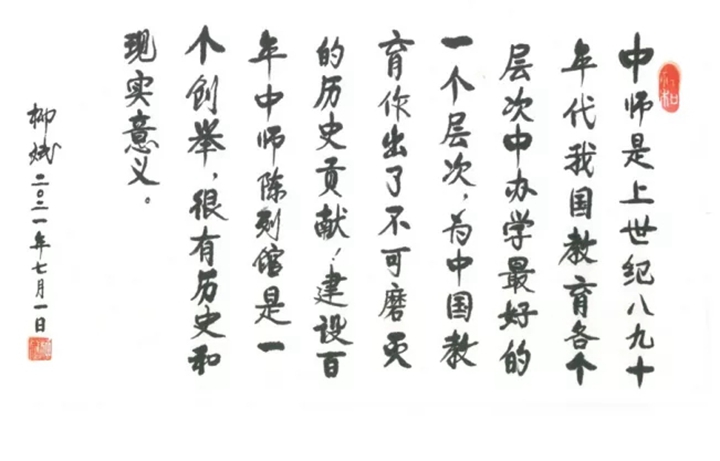 中师是上世纪八九十
年代我国教育各个
层次中办学最好的
一个层次，为中国教
育作出了不可磨灭
的历史贡献！建设百
年中师陈列馆是一
个创举，很有历史和
现实意义。
柳斌二〇二一年七月一日